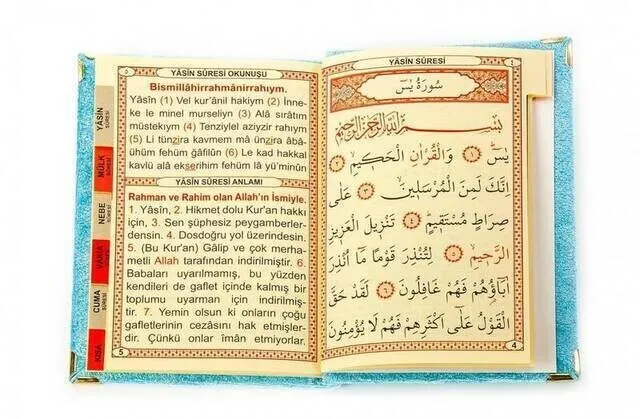 YÂSİN SÛRESİ
٤
سُورَةُ يٰسٓ
بِسْمِ اللّٰهِ الرَّحْمٰنِ الرَّحِيمِ
يٰسٓ ﴿١﴾ وَالْقُرْاٰنِ الْحَكِيمِ ﴿٢﴾
اِنَّكَ لَمِنَ الْمُرْسَلِينَ ﴿٣﴾ عَلٰى
صِرَاطٍ مُسْتَقِيمٍ ﴿٤﴾ تَنْزِيلَ الْعَزِيزِ
الرَّحِيمِ ﴿٥﴾ لِتُنْذِرَ قَوْمًا مَٓا اُنْذِرَ
اٰبَٓاؤُ۬هُمْ فَهُمْ غَافِلُونَ ﴿٦﴾ لَقَدْ حَقَّ
الْقَوْلُ عَلٰٓى اَكْثَرِهِمْ فَهُمْ لَا يُؤْمِنُونَ
4
٥
YÂSİN SÛRESİ OKUNUŞU
Bismillâhirrahmânirrahıym.
Yâsîn (1) Vel kur'ânil hakiym (2) İnne-
ke le minel murseliyn (3) Alâ sırâtım
müstekıym (4) Tenziylel aziyzir rahıym
(5) Li tünzira kavmem mâ ünzira âbâ-
ühüm fehüm gâfilûn (6) Le kad hakkal
kavlü alâ ekserihim fehüm lâ yü'minûn
YÂSİN SÛRESİ ANLAMI
Rahman ve Rahim olan Allah'ın İsmiyle.
1. Yâsîn, 2. Hikmet dolu Kur'an hakkı
için, 3. Sen şüphesiz peygamberler-
densin. 4. Dosdoğru yol üzerindesin.
5. (Bu Kur'an) Gâlip ve çok merha-
metli Allah tarafından indirilmiştir. 6.
Babaları uyarılmamış, bu yüzden
kendileri de gaflet içinde kalmış bir
toplumu uyarman için indirilmiş-
tir. 7. Yemin olsun ki onların çoğu
gafletlerinin cezâsını hak etmişler-
dir. Çünkü onlar îman etmiyorlar.
5
YÂSİN
SÛRESİ
MÜLK
SÛRESİ
NEBE
SÛRESİ
VÂKIA
SÛRESİ
CUMA
SÛRESİ
KISA